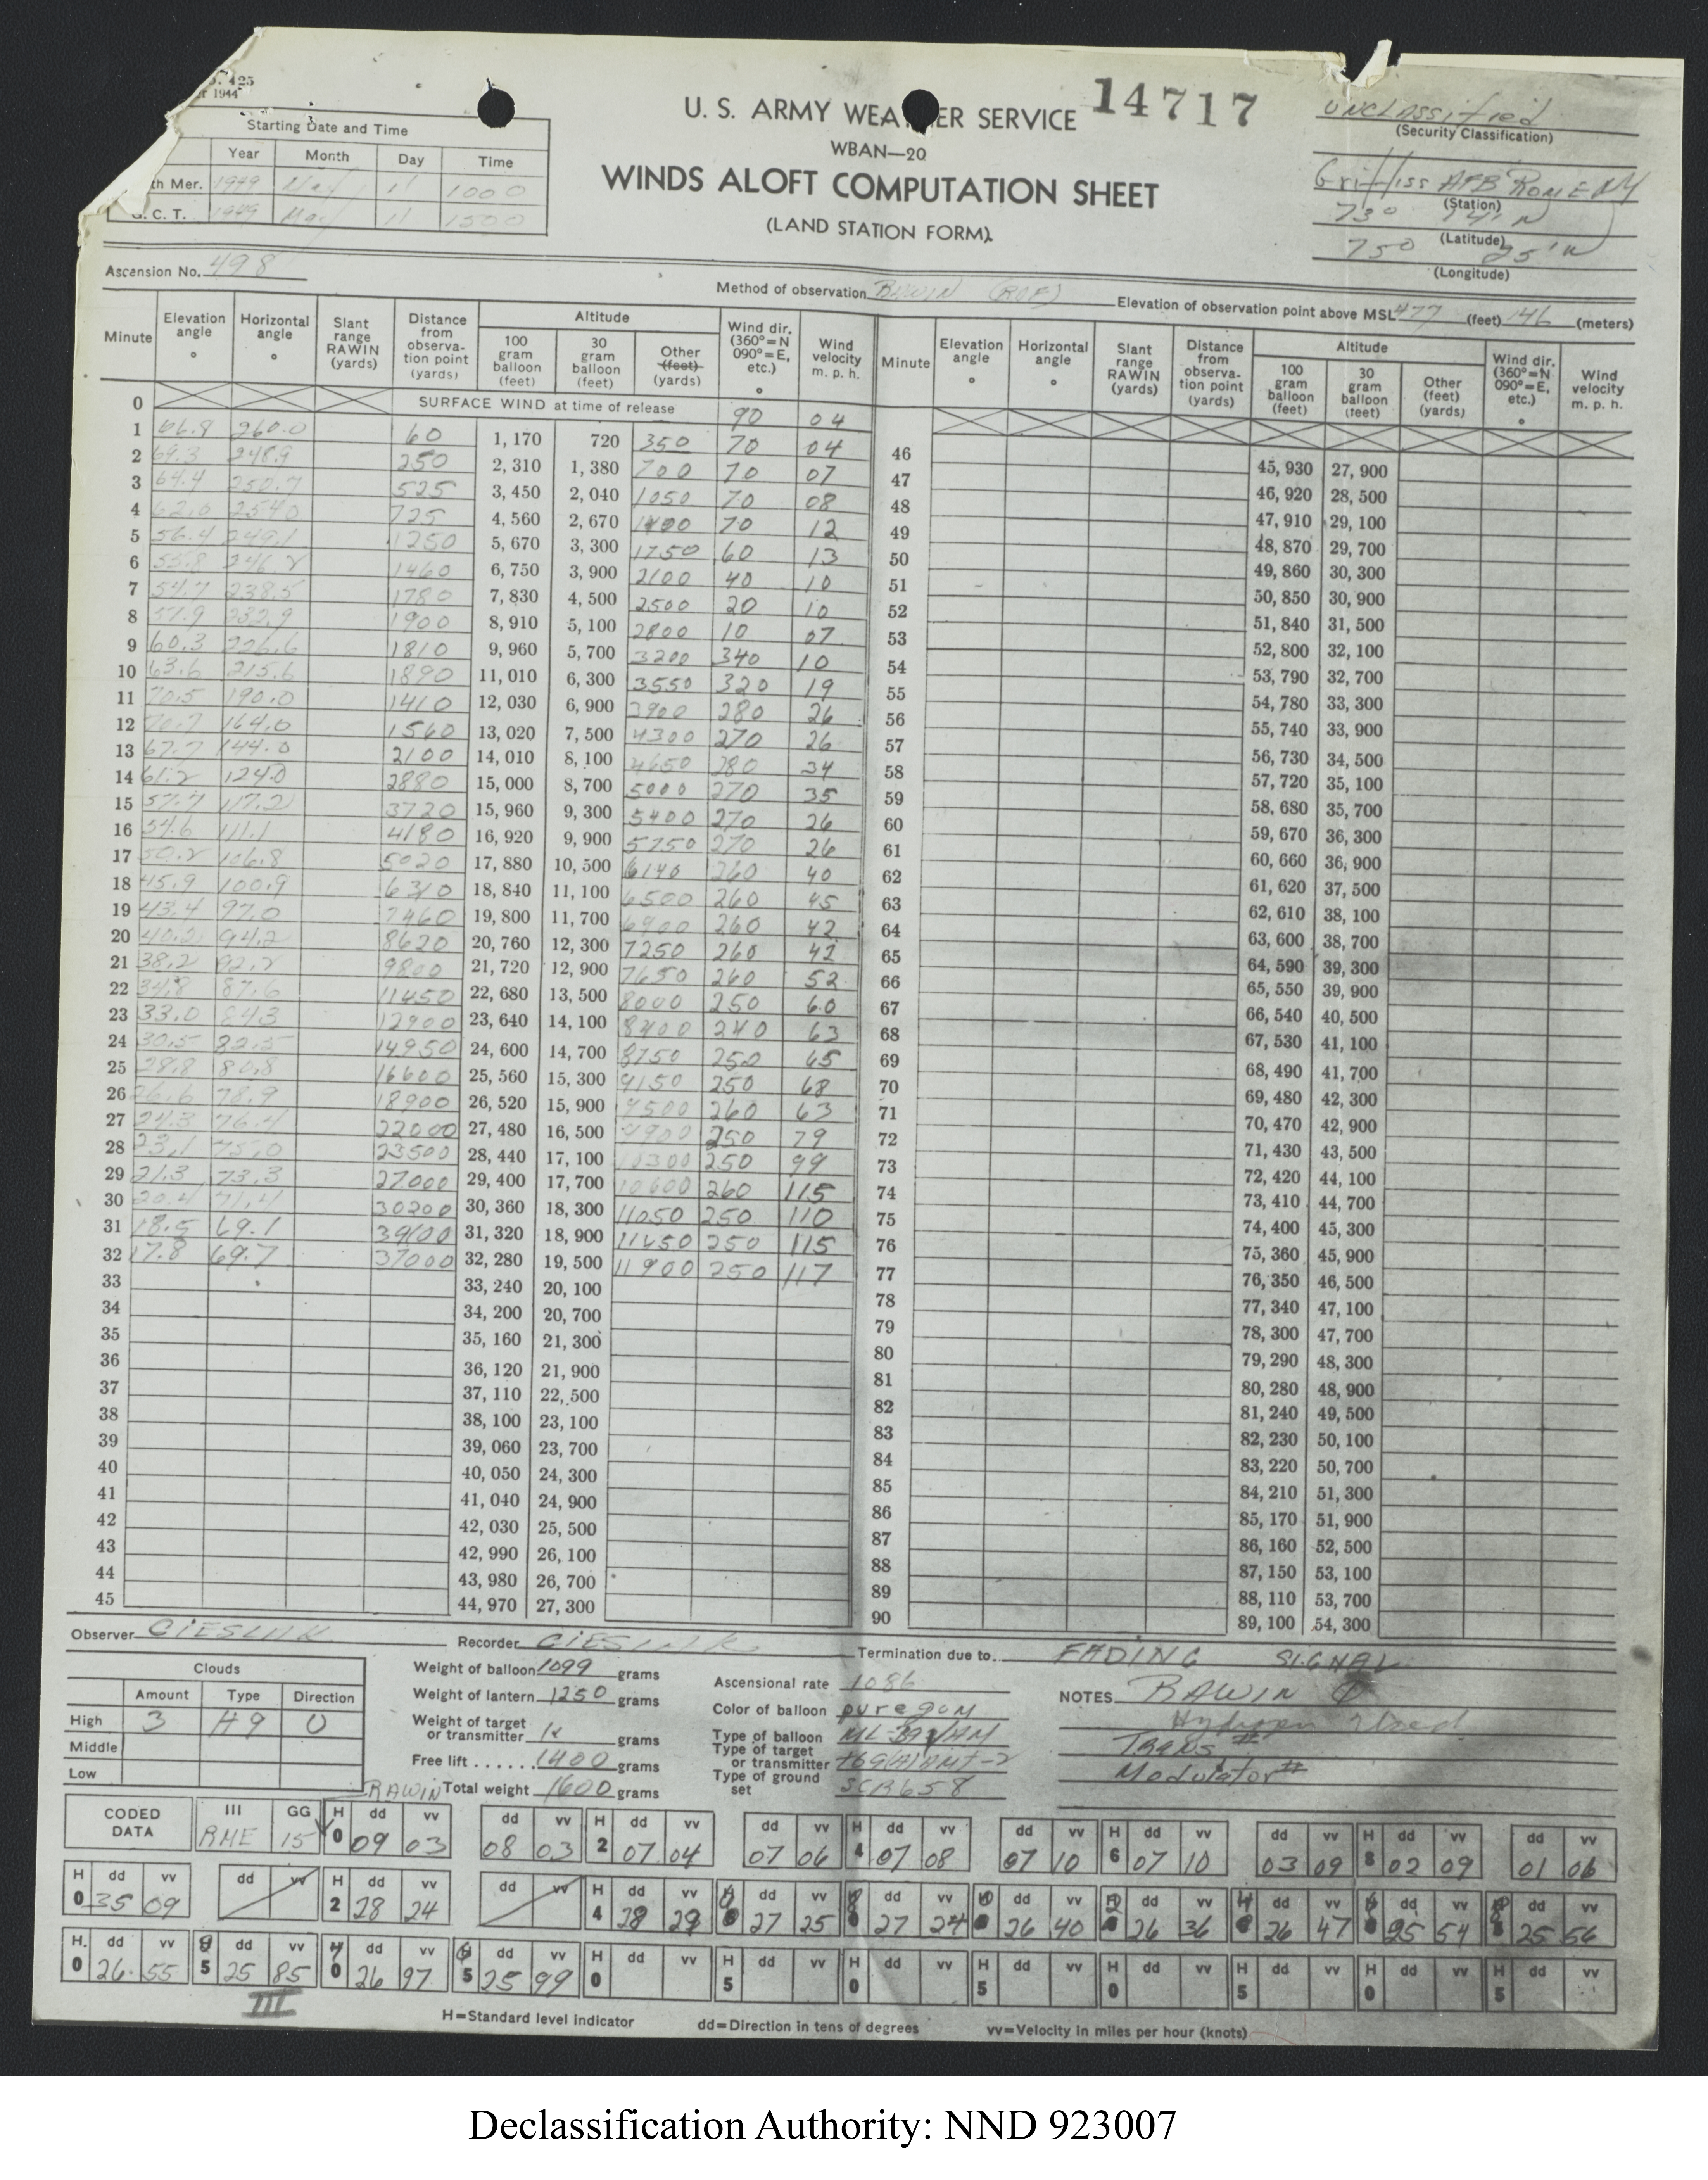 14717
U. S. ARMY WEATHER SERVICE
WBAN—20
WINDS ALOFT COMPUTATION SHEET
(LAND STATION FORM)
UNCLASSIFIED
(Security Classification)
Griffiss AFB ROME NY
(Station)
(Latitude)
(Longitude)
1944
Starting Date and Time
Year Month Day Time
th Mer. 1949 May 11 1000
G. C. T. 1949 May 11 1500
Ascension No. 498
Method of observation RAWIN
Elevation of observation point above MSL 477 (feet) 146 (meters)
Minute Elevation angle ° Horizontal angle ° Slant range RAWIN (yards) Distance from observation point (yards) Altitude 100 gram balloon (feet) 30 gram balloon (feet) Other (feet) (yards) Wind dir. (360°=N 090°=E, etc.) ° Wind velocity m. p. h.
Minute Elevation angle ° Horizontal angle ° Slant range RAWIN (yards) Distance from observation point (yards) Altitude 100 gram balloon (feet) 30 gram balloon (feet) Other (feet) (yards) Wind dir. (360°=N 090°=E, etc.) ° Wind velocity m. p. h.
0 SURFACE WIND at time of release 90 04
1 66.8 260.0 60 1,170 720 350 70 04
2 248.9 250 2,310 1,380 700 70 07
3 64.4 250.7 525 3,450 2,040 1050 70 08
4 254.0 725 4,560 2,670 1400 70 12
5 56.4 249.1 1250 5,670 3,300 1750 60 13
6 55.8 246.2 1460 6,750 3,900 2100 40 10
7 54.7 238.5 1780 7,830 4,500 2500 20 10
8 57.9 232.9 1900 8,910 5,100 2800 10 07
9 60.3 226.6 1810 9,960 5,700 3200 340 10
10 63.6 215.6 1890 11,010 6,300 3550 320 19
11 70.5 190.0 1410 12,030 6,900 3900 280 26
12 70.7 164.0 1560 13,020 7,500 4300 270 26
13 67.7 144.0 2100 14,010 8,100 4650 280 34
14 61.2 124.0 2880 15,000 8,700 5000 270 35
15 57.4 117.2 3720 15,960 9,300 5400 270 26
16 54.6 111.1 4180 16,920 9,900 5750 270 26
17 50.2 106.8 5020 17,880 10,500 6140 260 40
18 45.9 100.9 6310 18,840 11,100 6500 260 45
19 43.4 97.0 7460 19,800 11,700 6900 260 42
20 40.2 94.2 8620 20,760 12,300 7250 260 42
21 38.2 92.2 9800 21,720 12,900 7650 260 52
22 34.8 87.6 11450 22,680 13,500 8000 250 60
23 33.0 84.3 12900 23,640 14,100 8400 240 63
24 30.5 82.5 14950 24,600 14,700 8750 250 65
25 28.8 80.8 16600 25,560 15,300 9150 250 68
26 26.6 78.9 18900 26,520 15,900 9500 260 63
27 24.3 76.4 22000 27,480 16,500 9900 250 79
28 23.1 75.0 23500 28,440 17,100 10300 250 99
29 21.3 73.3 27000 29,400 17,700 10600 260 115
30 20.4 71.4 30200 30,360 18,300 11050 250 110
31 18.5 69.1 39100 31,320 18,900 11450 250 115
32 17.8 69.7 37000 32,280 19,500 11900 250 117
33 33,240 20,100
34 34,200 20,700
35 35,160 21,300
36 36,120 21,900
37 37,110 22,500
38 38,100 23,100
39 39,060 23,700
40 40,050 24,300
41 41,040 24,900
42 42,030 25,500
43 42,990 26,100
44 43,980 26,700
45 44,970 27,300
46 45,930 27,900
47 46,920 28,500
48 47,910 29,100
49 48,870 29,700
50 49,860 30,300
51 50,850 30,900
52 51,840 31,500
53 52,800 32,100
54 53,790 32,700
55 54,780 33,300
56 55,740 33,900
57 56,730 34,500
58 57,720 35,100
59 58,680 35,700
60 59,670 36,300
61 60,660 36,900
62 61,620 37,500
63 62,610 38,100
64 63,600 38,700
65 64,590 39,300
66 65,550 39,900
67 66,540 40,500
68 67,530 41,100
69 68,490 41,700
70 69,480 42,300
71 70,470 42,900
72 71,430 43,500
73 72,420 44,100
74 73,410 44,700
75 74,400 45,300
76 75,360 45,900
77 76,350 46,500
78 77,340 47,100
79 78,300 47,700
80 79,290 48,300
81 80,280 48,900
82 81,240 49,500
83 82,230 50,100
84 83,220 50,700
85 84,210 51,300
86 85,170 51,900
87 86,160 52,500
88 87,150 53,100
89 88,110 53,700
90 89,100 54,300
Observer CIESLIK Recorder CIESLIK Termination due to FADING SIGNAL
Clouds
Amount Type Direction
High 3 H9 U
Middle
Low
Weight of balloon 1099 grams
Weight of lantern 1250 grams
Weight of target or transmitter grams
Free lift ...... 1400 grams
RAWIN Total weight 1600 grams
Ascensional rate 1086
Color of balloon pure gum
Type of balloon
Type of target or transmitter
Type of ground set SCR658
NOTES RAWIN
Hydrogen Used
Trans #
Modulator #
CODED DATA III RME GG 15 H 0 dd 09 vv 03 dd 08 vv 03 H 2 dd 07 vv 04 dd 07 vv 06 H 4 dd 07 vv 08 dd 07 vv 10 H 6 dd 07 vv 10 dd 03 vv 09 H 8 dd 02 vv 09 dd 01 vv 06
H 0 dd 35 vv 09 dd vv H 2 dd 28 vv 24 dd vv H 4 dd 28 vv 29 dd 27 vv 25 dd 27 vv 24 dd 26 vv 40 dd 26 vv 36 dd 26 vv 47 dd 25 vv 54 dd 25 vv 56
H 0 dd 26 vv 55 5 dd 25 vv 85 0 dd 26 vv 97 5 dd 25 vv 99 H 0 dd vv H 5 dd vv H 0 dd vv H 5 dd vv H 0 dd vv H 5 dd vv H 0 dd vv H 5 dd vv
III
H=Standard level indicator dd=Direction in tens of degrees vv=Velocity in miles per hour (knots)
Declassification Authority: NND 923007